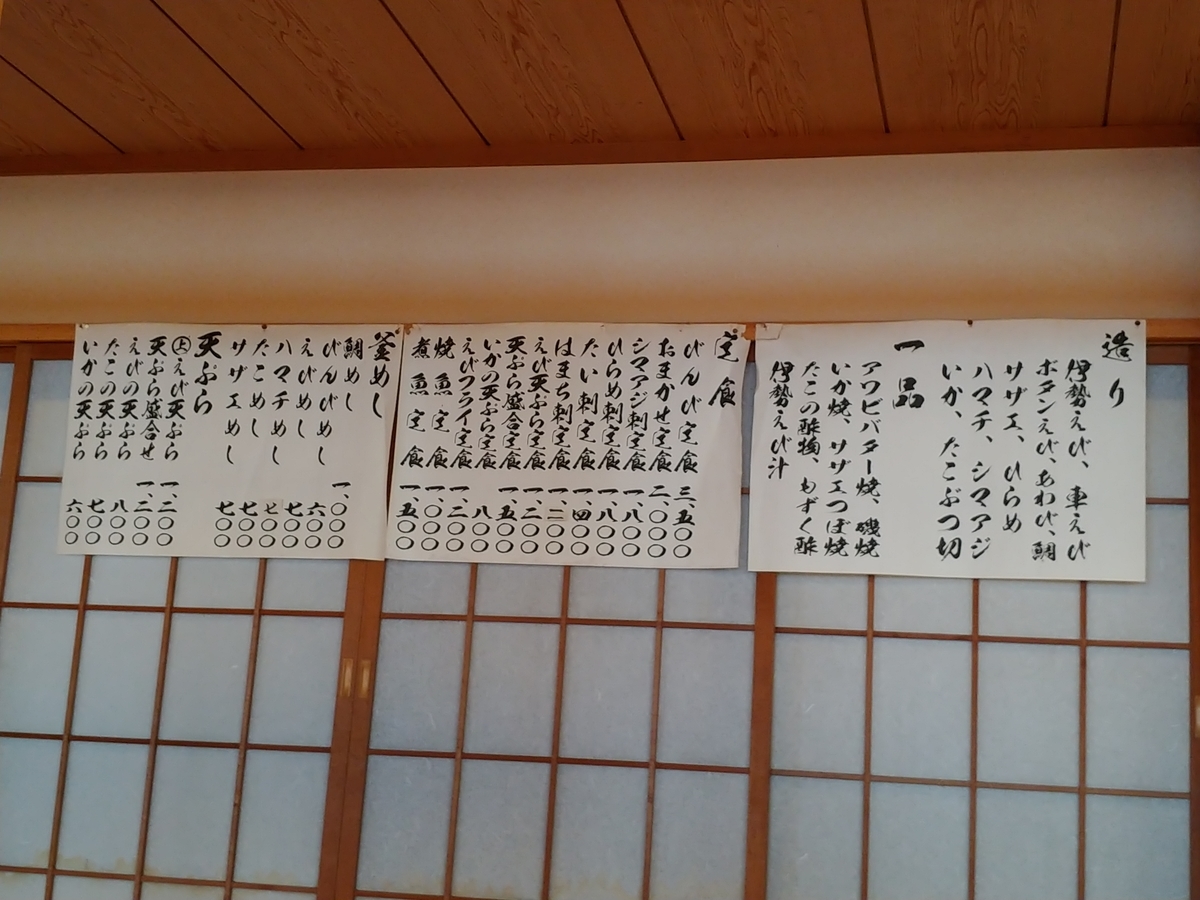 造り
伊勢えび、車えび
ボタンえび、あわび、鯛
サザエ、ひらめ
ハマチ、シマアジ
いか、たこぶつ切
一品
アワビバター焼、磯焼
いか焼、サザエつぼ焼
たこの酢物、もずく酢
伊勢えび汁
定食
びんび定食 三、五〇〇
おまかせ定食 二、〇〇〇
シマアジ刺定食 一、八〇〇
ひらめ刺定食 一、八〇〇
たい刺定食 一、四〇〇
はまち刺定食
えび天ぷら定食 一、二〇〇
天ぷら盛合定食 一、五〇〇
いかの天ぷら定食 八〇〇
えびフライ定食 一、二〇〇
焼魚定食 一、〇〇〇
煮魚定食 一、五〇〇
釜めし
鯛めし 一、〇〇〇
びんびめし 六〇〇
えびめし 七〇〇
ハマチめし 七〇〇
たこめし 七〇〇
サザエめし 七〇〇
天ぷら
㊤えび天ぷら 一、二〇〇
天ぷら盛合せ 一、二〇〇
えびの天ぷら 八〇〇
たこの天ぷら 七〇〇
いかの天ぷら 六〇〇